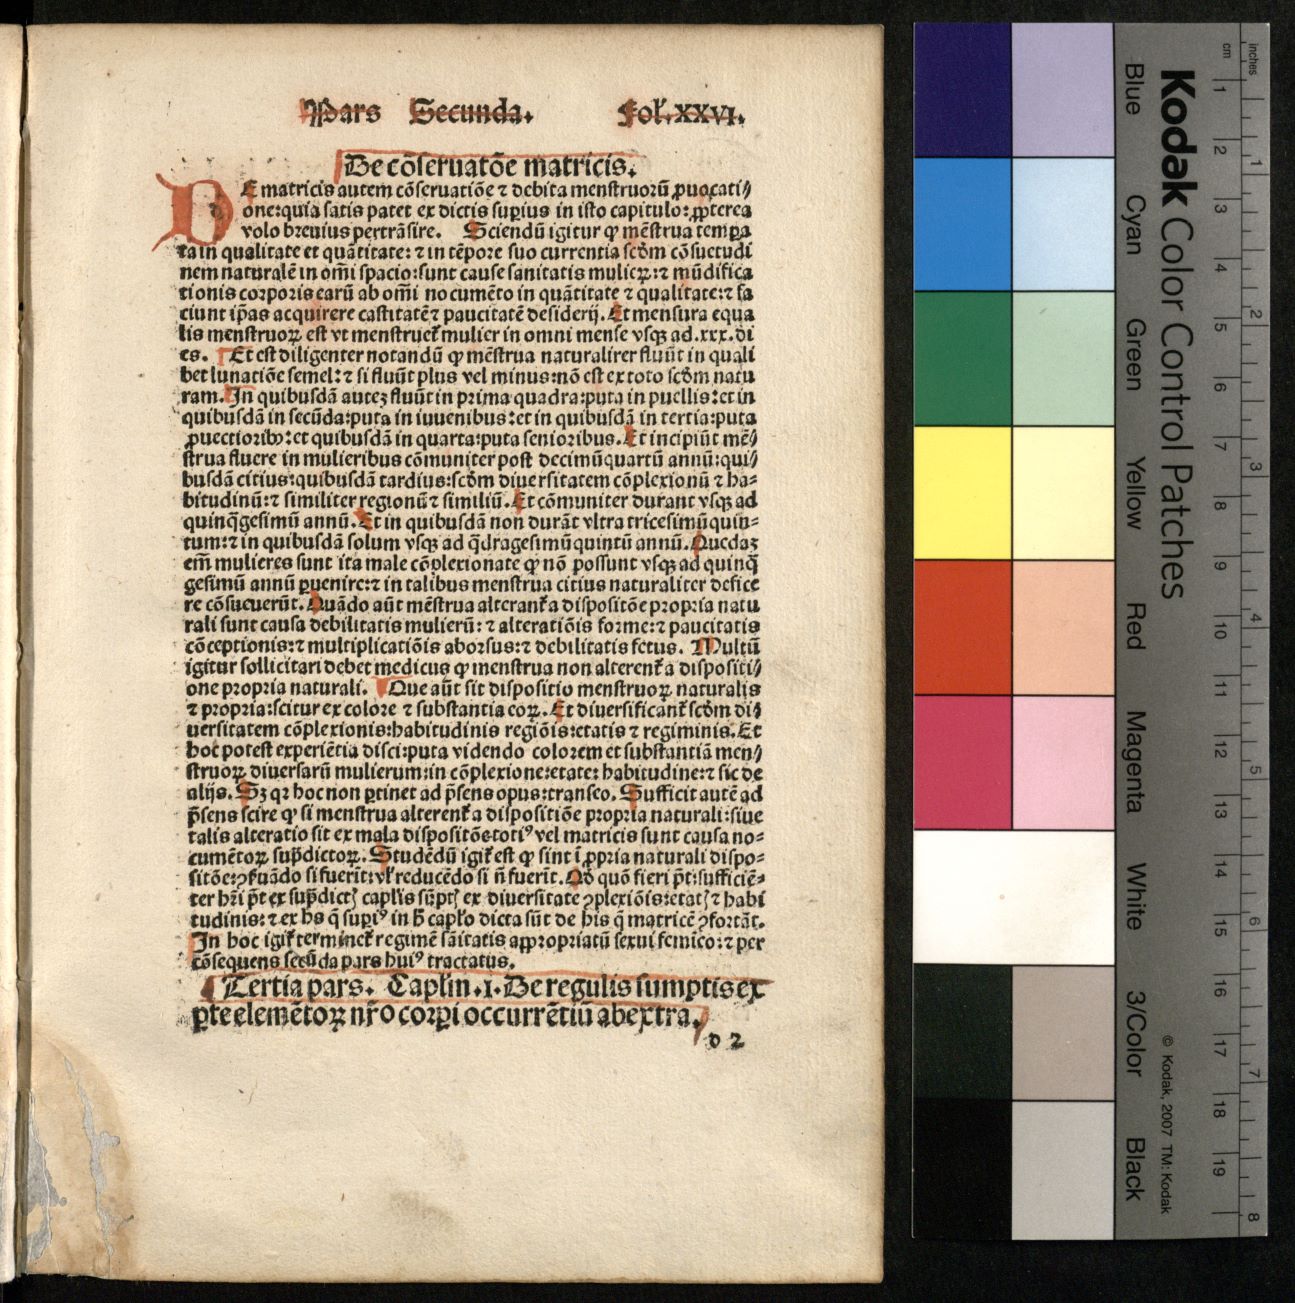 Pars Secunda. Fol'.XXVI.
De cōseruatōe matricis.
DE matricis autem cōseruatiōe ⁊ debita menstruorū ꝓuocati⸗
one: quia satis patet ex dictis supius in isto capitulo: ꝓpterea
volo breuius pertrāsire. Sciendū igitur ꝙ mēstrua tempa
ta in qualitate et quātitate: ⁊ in tēpore suo currentia scd̄m cōsuetudi
nem naturalē in om̄i spacio: sunt cause sanitatis mulieꝝ: ⁊ mūdifica
tionis corporis earū ab om̄i nocumēto in quātitate ⁊ qualitate: ⁊ fa
ciunt ip̄as acquirere castitatē ⁊ paucitatē desiderij. Et mensura equa
lis menstruoꝝ est vt menstruet᷑ mulier in omni mense vsqꝫ ad .xxx. di
es. Et est diligenter notandū ꝙ mēstrua naturalirer fluūt in quali
bet lunatiōe semel: ⁊ si fluūt plus vel minus: nō est ex toto scd̄m natu
ram. In quibusdā auteꝫ fluūt in prima quadra: puta in puellis: et in
quibusdā in secūda: puta in iuuenibus: et in quibusdā in tertia: puta
ꝓuectioribꝰ: et quibusdā in quarta: puta senioribus. Et incipiūt mē⸗
strua fluere in mulieribus cōmuniter post decimūquartū annū: qui⸗
busdā citius: quibusdā tardius: scd̄m diuersitatem cōplexionū ⁊ ha⸗
bitudinū: ⁊ similiter regionū ⁊ similiū. Et cōmuniter durant vsqꝫ ad
quinq̄gesimū annū. Et in quibusdā non durāt vltra tricesimūquin⸗
tum: ⁊ in quibusdā solum vsqꝫ ad q̄dragesimūquintū annū. Quedaꝫ
em̄ mulieres sunt ita male cōplexionate ꝙ nō possunt vsqꝫ ad quinq̄
gesimū annū ꝑuenire: ⁊ in talibus menstrua citius naturaliter defice
re cōsueuerūt. Quādo aūt mēstrua alterant᷑ a dispositōe propria natu
rali sunt causa debilitatis mulierū: ⁊ alteratiōis forme: ⁊ paucitatis
cōceptionis: ⁊ multiplicatiōis aborsus: ⁊ debilitatis fetus. Multū
igitur sollicitari debet medicus ꝙ menstrua non alterent᷑ a dispositi⸗
one propria naturali. Que aūt sit dispositio menstruoꝝ naturalis
⁊ propria: scitur ex colore ⁊ substantia eoꝝ. Et diuersificant᷑ scd̄m di⸗
uersitatem cōplexionis: habitudinis regiōis: etatis ⁊ regiminis. Et
hoc potest experiētia disci: puta videndo colorem et substantiā men⸗
struoꝝ diuersarū mulierum: in cōplexione: etate: habitudine: ⁊ sic de
alijs. Sꝫ qꝛ hoc non ꝑtinet ad p̄sens opus: transeo. Sufficit autē ad
p̄sens scire ꝙ si menstrua alterent᷑ a dispositiōe propria naturali: siue
talis alteratio sit ex mala dispositōe totiꝰ vel matricis sunt causa no⸗
cumētoꝝ sup̄dictoꝝ. Studēdū igit᷑ est ꝙ sint ī ꝓpria naturali dispo⸗
sitōe: ꝯẜuādo si fuerit: vl' reducēdo si n̄ fuerit. Qd̄ quō fieri p̄t: sufficiē⸗
ter hr̄i p̄t ex sup̄dictꝭ capl'is sūptꝭ ex diuersitate ꝯplexiōis: etatꝭ ⁊ habi
tudinis: ⁊ ex hs q̄ supiꝰ in h̄ capl'o dicta sūt de his q̄ matricē ꝯfortāt.
In hoc igit᷑ terminet᷑ regimē sāitatis appropriatū sexui femīeo: ⁊ per
cōsequens secūda pars huiꝰ tractatus.
Tertia pars. Capl'm .I. De regulis sumptis ex
ꝑte elemētoꝝ nr̄o corpi occurrētiū ab extra.
d 2
Kodak Color Control Patches
Blue
Cyan
Green
Yellow
Red
Magenta
White
3/Color
Black
© Kodak, 2007 TM: Kodak
cm 1 2 3 4 5 6 7 8 9 10 11 12 13 14 15 16 17 18 19
inches 1 2 3 4 5 6 7 8